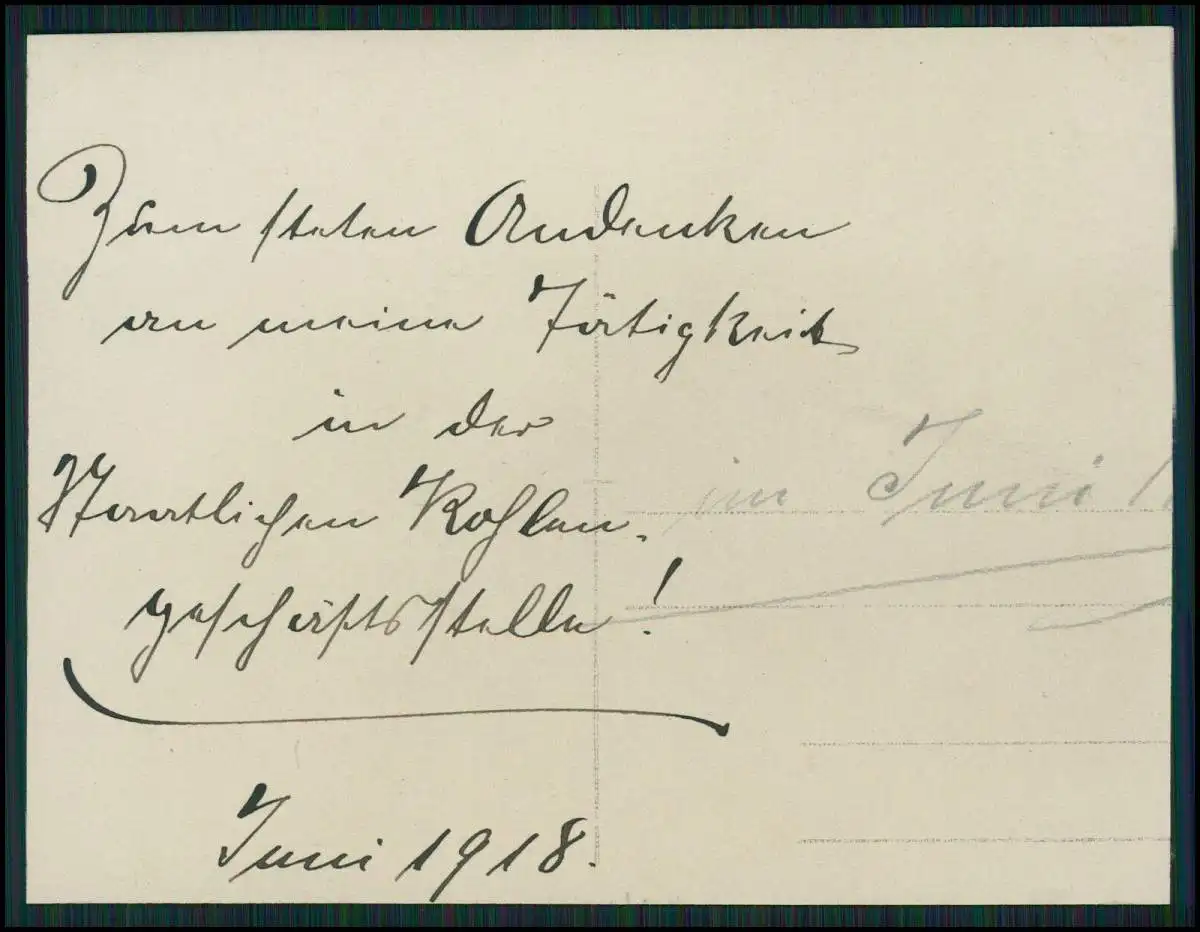 Zum steten Andenken
an meine Tätigkeit
in der
Staatlichen Kohlen-
geschäftsstelle!
im Juni 1
Juni 1918.